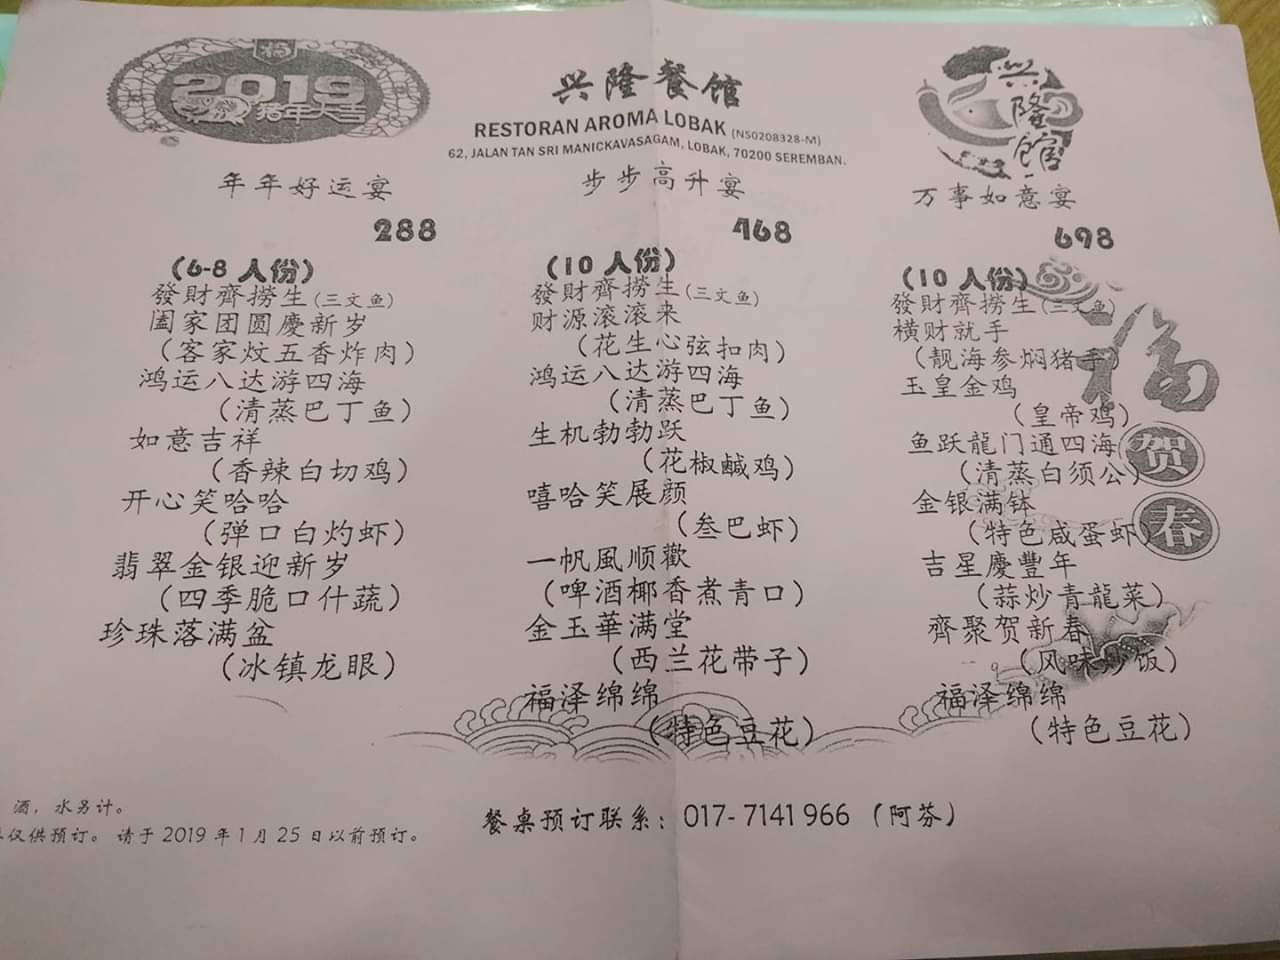 福
2019
猪年大吉
兴隆餐馆
RESTORAN AROMA LOBAK (NS0208328-M)
62, JALAN TAN SRI MANICKAVASAGAM, LOBAK, 70200 SEREMBAN.
兴隆馆
年年好运宴
288
(6-8 人份)
發財齊捞生(三文鱼)
阖家团圆慶新岁
(客家炆五香炸肉)
鸿运八达游四海
(清蒸巴丁鱼)
如意吉祥
(香辣白切鸡)
开心笑哈哈
(弹口白灼虾)
翡翠金银迎新岁
(四季脆口什蔬)
珍珠落满盆
(冰镇龙眼)
步步高升宴
468
(10 人份)
發財齊捞生(三文鱼)
财源滚滚来
(花生心弦扣肉)
鸿运八达游四海
(清蒸巴丁鱼)
生机勃勃跃
(花椒鹹鸡)
嘻哈笑展颜
(叁巴虾)
一帆風顺歡
(啤酒椰香煮青口)
金玉華满堂
(西兰花带子)
福泽绵绵
(特色豆花)
万事如意宴
698
(10 人份)
發財齊捞生(三文鱼)
横财就手
(靓海参焖猪手)
玉皇金鸡
(皇帝鸡)
鱼跃龍门通四海
(清蒸白须公)
金银满钵
(特色咸蛋虾)
吉星慶豐年
(蒜炒青龍菜)
齊聚贺新春
(风味炒饭)
福泽绵绵
(特色豆花)
福
贺
春
酒，水另计。
仅供预订。 请于 2019 年 1 月 25 日以前预订。
餐桌预订联系：017-7141 966 (阿芬)